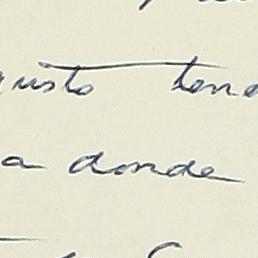 gusto tene
a donde